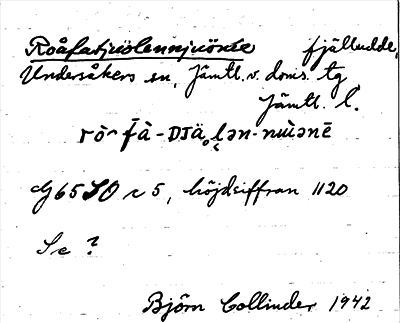 Roåfatjuolennjuönie fjälludde,
Undersåkers sn, Jämtl. v. doms. tg
Jämtl. l.
G65SO c 5, höjdsiffran 1120
Se ?
Björn Collinder 1942